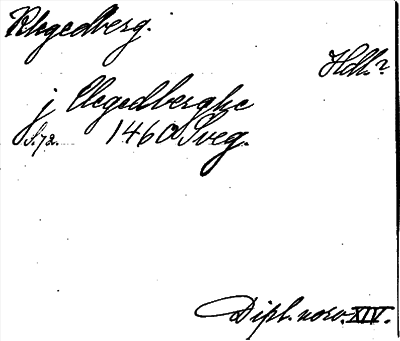 Klegedberg.
Hdl.?
j Clegedberghe
S. 72. 1460 Sveg.
Dipl. norv. XIV.